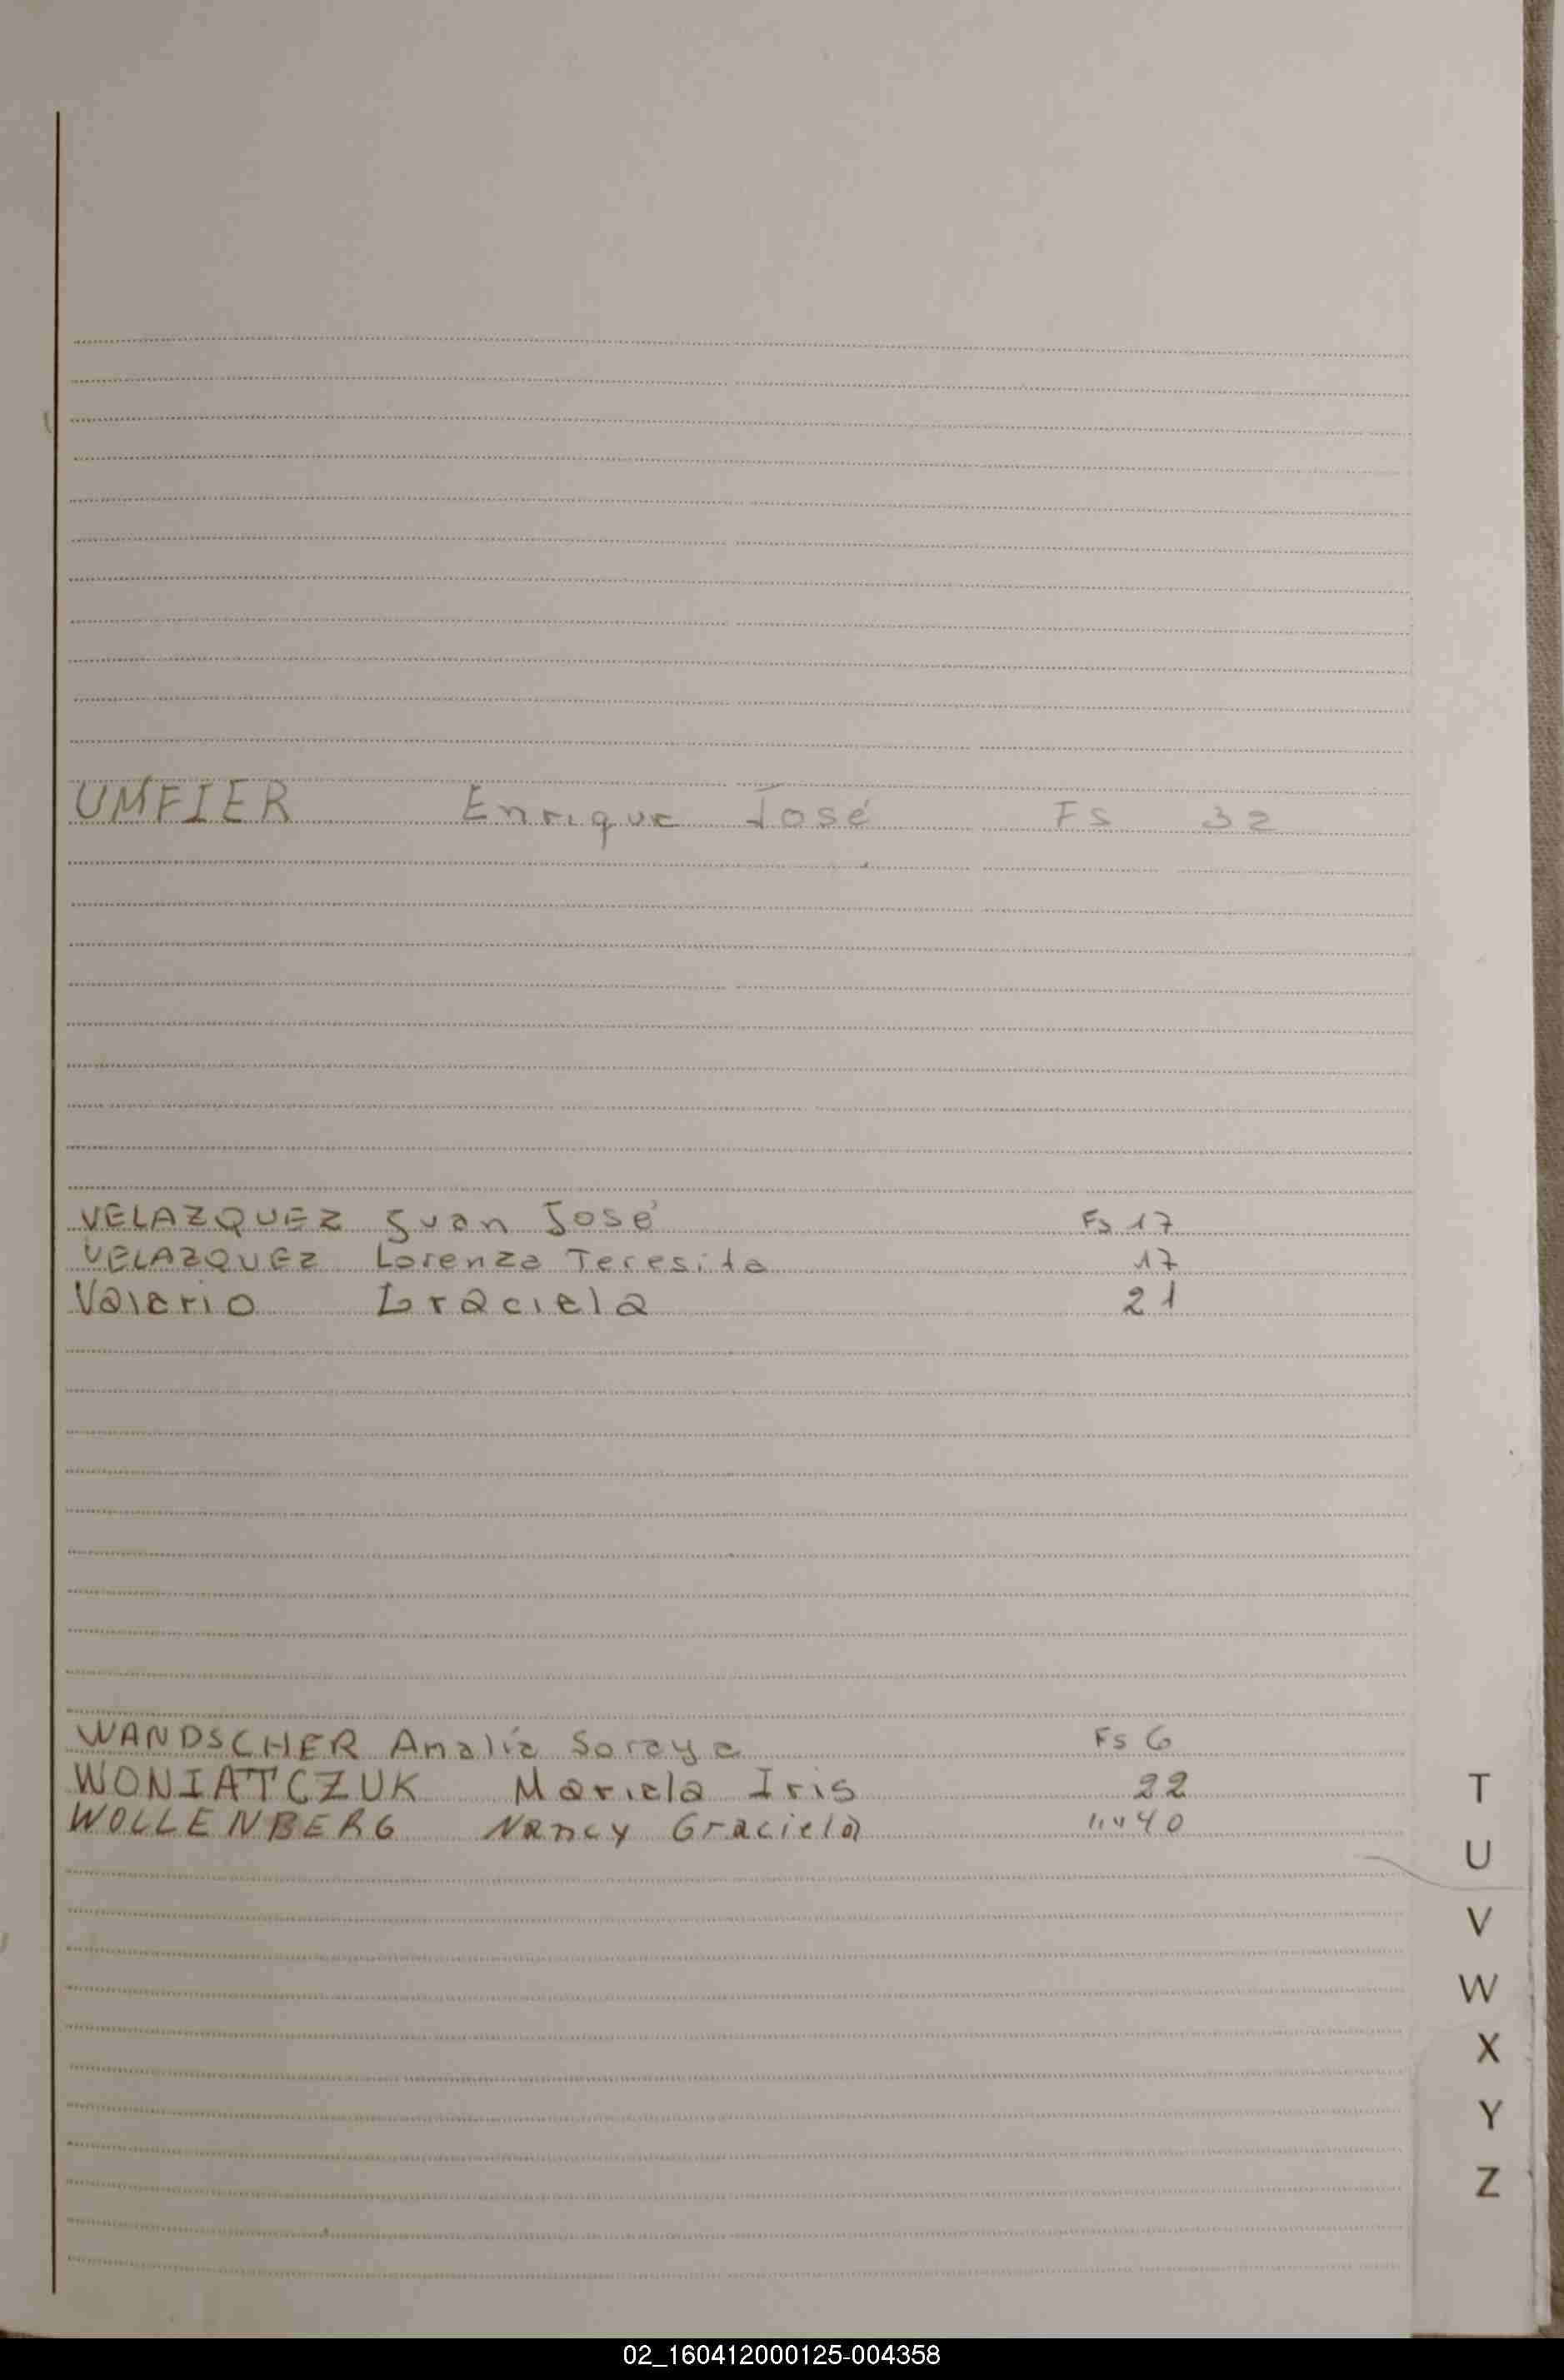 UMFIER Enrique José Fs 32
VELAZQUEZ Juan José Fs 17
VELAZQUEZ Lorenza Teresita 17
Valerio Graciela 21
WANDSCHER Analía Soraya Fs 6
WONIATCZUK Mariela Iris 22
WOLLENBERG Nancy Graciela """ 40
T
U
V
W
X
Y
Z
02_160412000125-004358